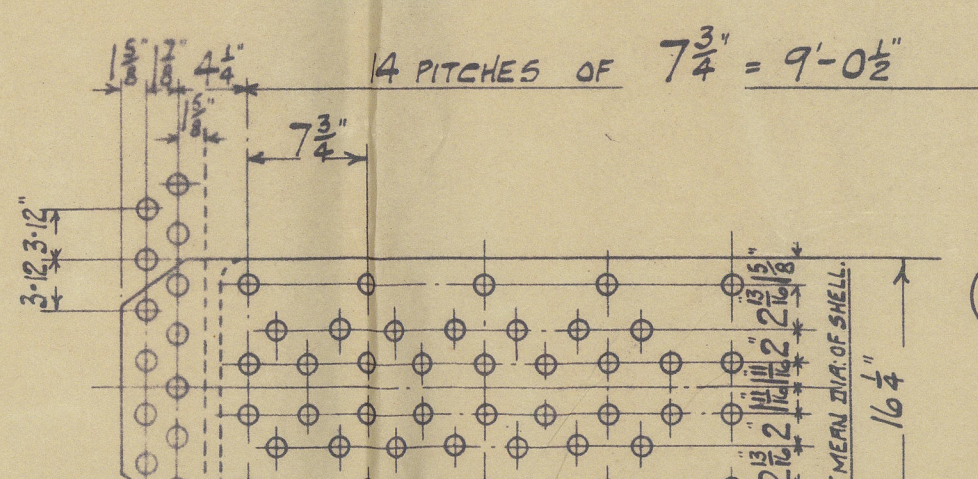 1 5/8" 1 7/8" 4 1/4" 14 PITCHES OF 7 3/4" = 9'-0 1/2"
1 5/8"
7 3/4"
3·12, 3·12"
1 5/8"
2 13/16"
2"
1 11/16"
1 11/16"
2"
2 13/16"
MEAN DIA. OF SHELL.
16 1/4"